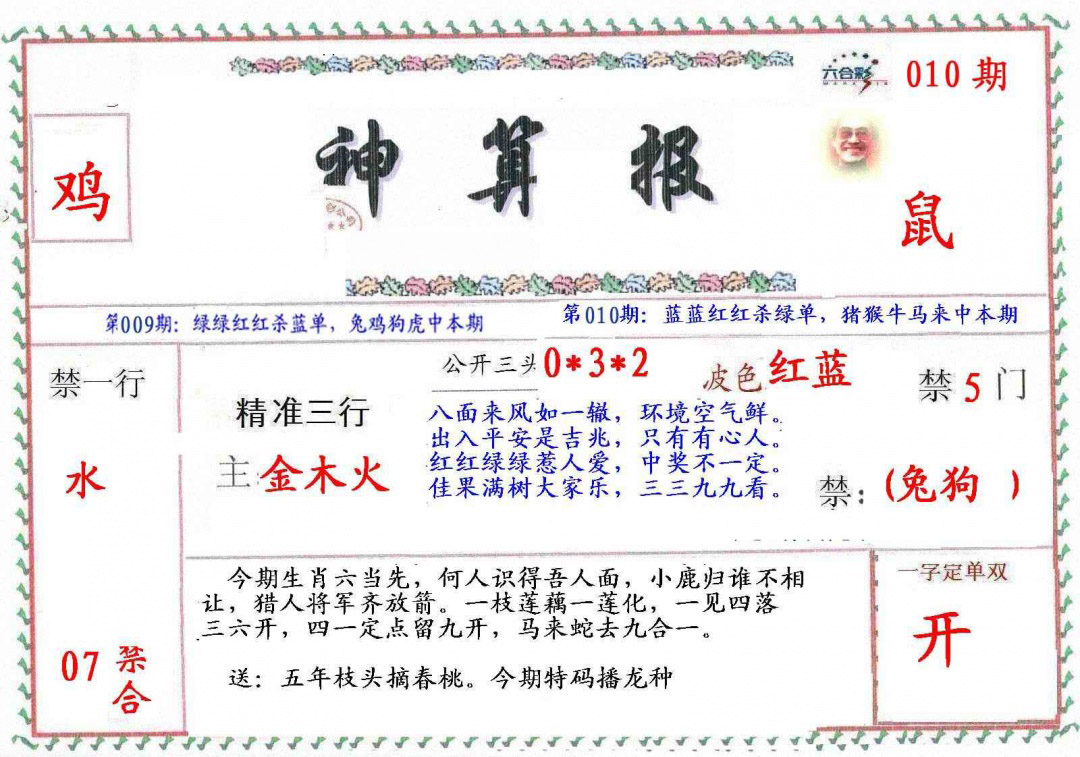 六合彩
010 期
神算报
鸡
鼠
第009期：绿绿红红杀蓝单，兔鸡狗虎中本期
第010期：蓝蓝红红杀绿单，猪猴牛马来中本期
禁一行
水
07 禁合
精准三行
主:金木火
公开三头 0*3*2
波色 红蓝
八面来风如一辙，环境空气鲜。
出入平安是吉兆，只有有心人。
红红绿绿惹人爱，中奖不一定。
佳果满树大家乐，三三九九看。
禁 5 门
禁：(兔狗 )
今期生肖六当先，何人识得吾人面，小鹿归谁不相
让，猎人将军齐放箭。一枝莲藕一莲化，一见四落
三六开，四一定点留九开，马来蛇去九合一。
送：五年枝头摘春桃。今期特码播龙种
一字定单双
开